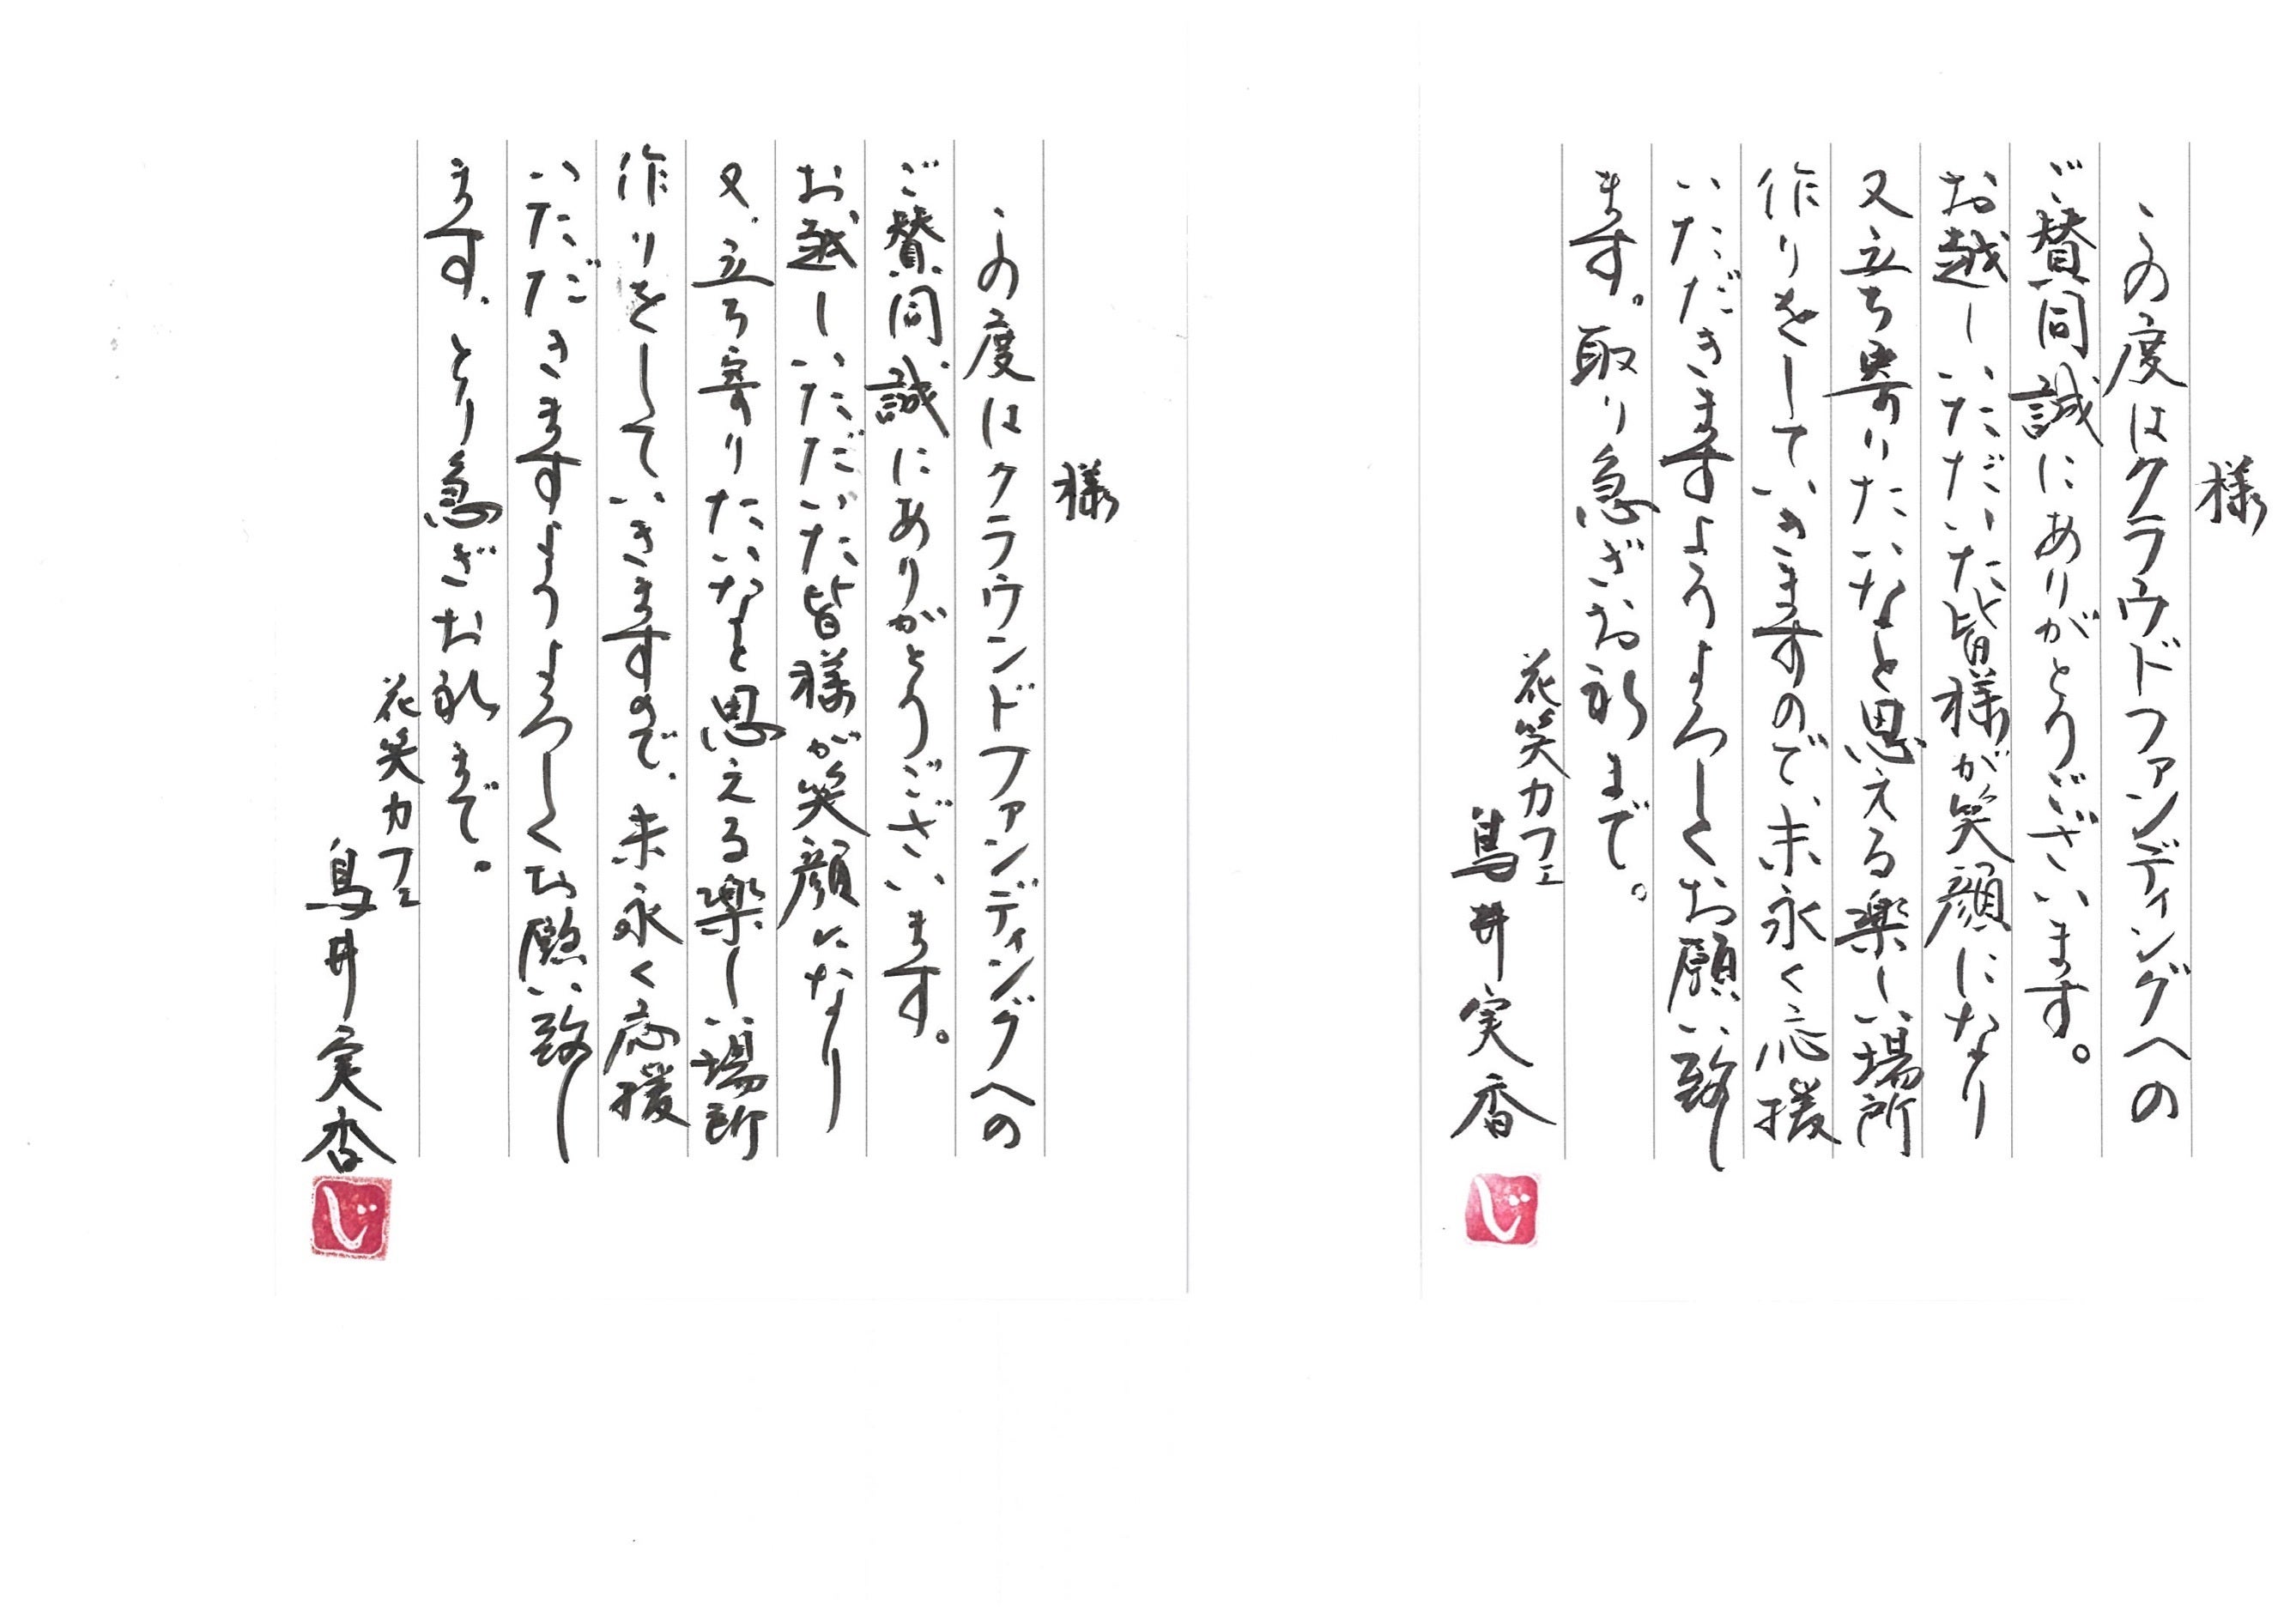 様
この度はクラウドファンディングへの
ご賛同誠にありがとうございます。
お越しいただいた皆様が笑顔になり
又立ち寄りたいなと思える楽しい場所
作りをしていきますので、末永く応援
いただきますようよろしくお願い致し
ます。取り急ぎお礼まで。
花笑カフェ
鳥井実香
じ
様
この度はクラウンドファンディングへの
ご賛同誠にありがとうございます。
お越しいただいた皆様が笑顔になり
又、立ち寄りたいなと思える楽しい場所
作りをしていきますので、末永く応援
いただきますようよろしくお願い致し
ます、とり急ぎお礼まで。
花笑カフェ
鳥井実香
じ